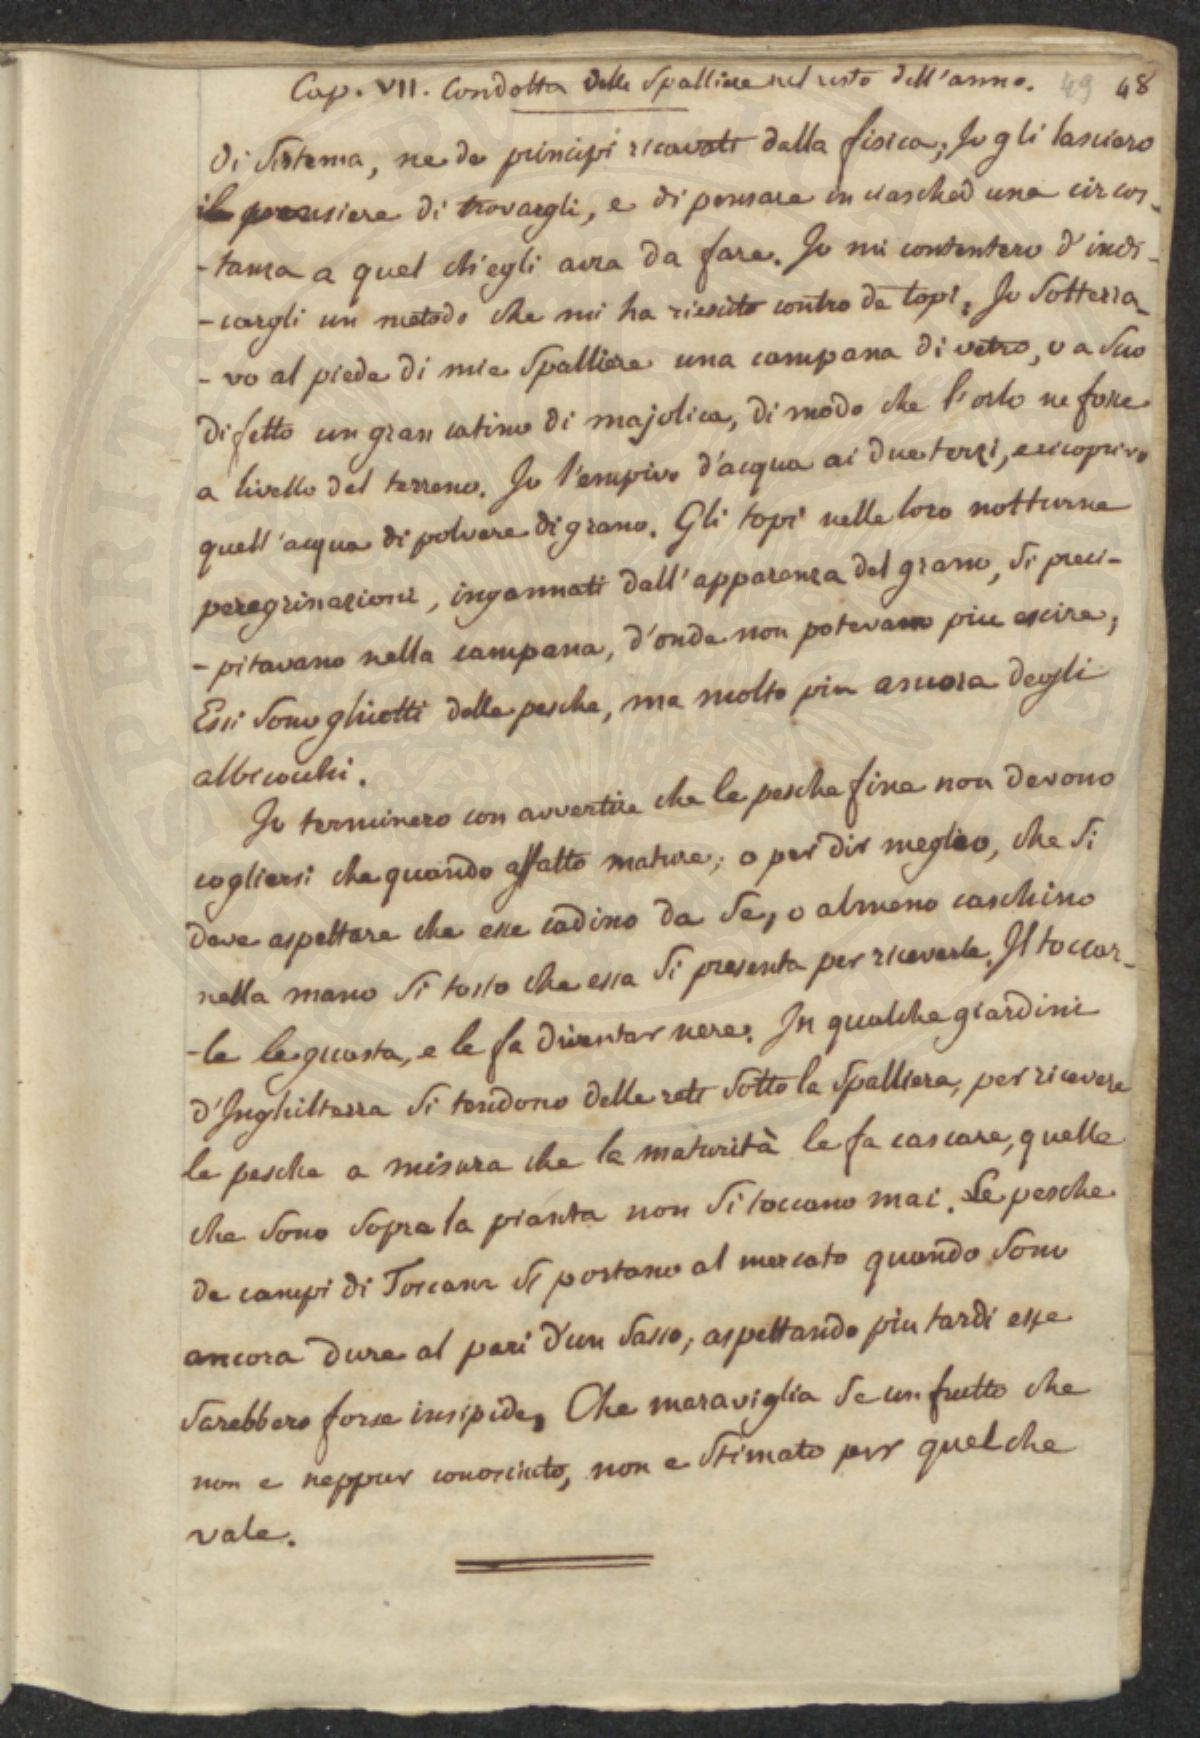 Cap. VII. Condotta delle Spalliere nel resto dell'anno. 49 48
di Sistema, ne de principi ricavati dalla fisica; Io gli lasciero
il pensiere di trovargli, e di pensare in ciasched'una circos-
-tanza a quel ch'egli avra da fare. Io mi contentero d'indi-
-cargli un metodo che mi ha riescito contro de topi; Io Sotterra-
-vo al piede di mie Spalliere una campana di vetro, o a Suo
difetto un gran catino di majolica, di modo che l'orlo ne fosse
a livello del terreno. Io l'empivo d'acqua ai due terzi, e ricoprivo
quell'acqua di polvere di grano. Gli topi nelle loro notturne
peregrinazioni, ingannati dall'apparenza del grano, Si preci-
-pitavano nella campana, d'onde non potevano piu escire;
Essi Sono ghiotti delle pesche, ma molto piu ancora degli
albicocchi.
Io terminero con avvertire che le pesche fine non devono
cogliersi che quando affatto mature; o per dir meglio, che Si
deve aspettare che esse cadino da Se, o almeno caschino
nella mano Si tosto che essa Si presenta per riceverle. Il toccar-
-le le guasta, e le fa diventar nere. In qualche giardini
d'Inghilterra Si tendono delle reti Sotto la Spalliera, per ricevere
le pesche a misura che la maturità le fa cascare, quelle
che Sono Sopra la pianta non Si toccano mai. Le pesche
de campi di Toscana Si portano al mercato quando Sono
ancora dure al pari d'un Sasso; aspettando piu tardi esse
Sarebbero forse insipide, Che maraviglia Se un frutto che
non e neppur conosciuto, non e Stimato per quel che
vale.